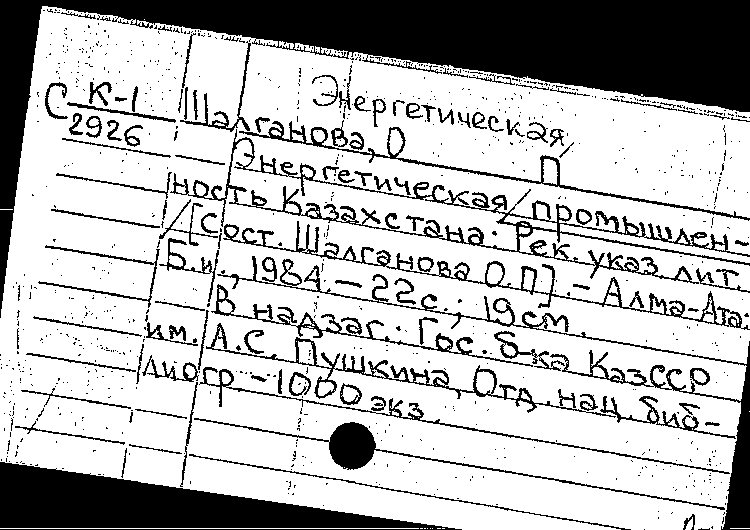 Энергетическая
С К-1
2926
Шалганова, О П
Энергетическая промышлен-
ность Казахстана: Рек. указ. лит.
/[Сост. Шалганова О.П]. - Алма-Ата:
Б.и., 1984. - 22с.; 19см.
В надзаг.: Гос. б-ка КазССР
им. А.С. Пушкина, Отд. нац. биб-
лиогр - 1000 экз.